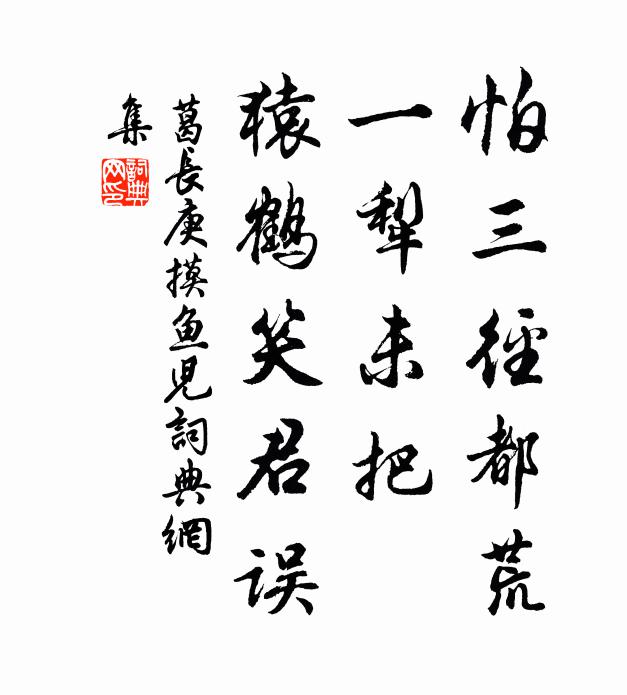 怕三徑都荒
一犁未把
猿鶴笑君误
葛長庚摸鱼児詞典網
集
詞典
网印